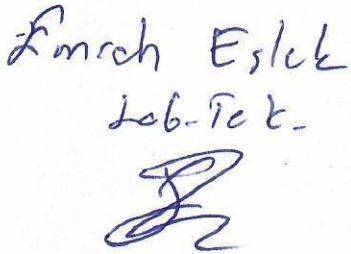 Emrah Eslek
Lab. Tek.